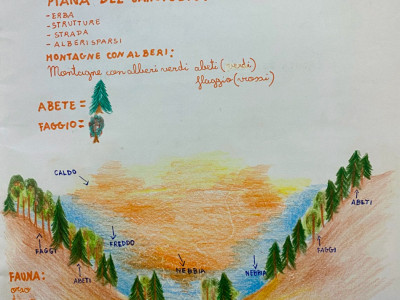 PIANA DEL
- ERBA
- STRUTTURE
- STRADA
- ALBERI SPARSI
MONTAGNE CON ALBERI:
Montagne con alberi verdi abeti (verdi)
flaggio (rossi)
ABETE =
FAGGIO =
CALDO
ABETI
FAGGI
FREDDO
NEBBIA
NEBBIA
FAGGI
ABETI
FAUNA:
orso